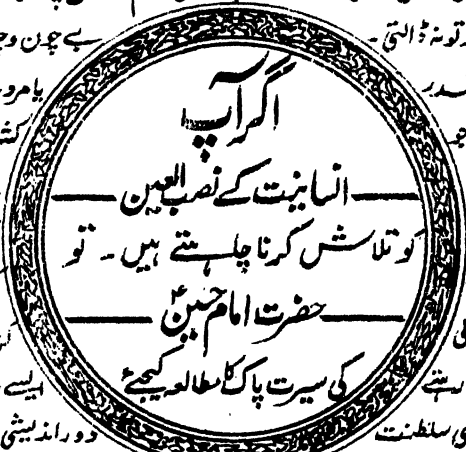 اگر آپ
انسانیت کے نصب العین
کو تلاش کرنا چاہتے ہیں ۔ تو
حضرت امام حسینؑ
کی سیرت پاک کا مطالعہ کیجئے
تو نہ ڈالتی ۔
بے چون و
یا مرو
ایسے
سلطنت
دور اندیشی